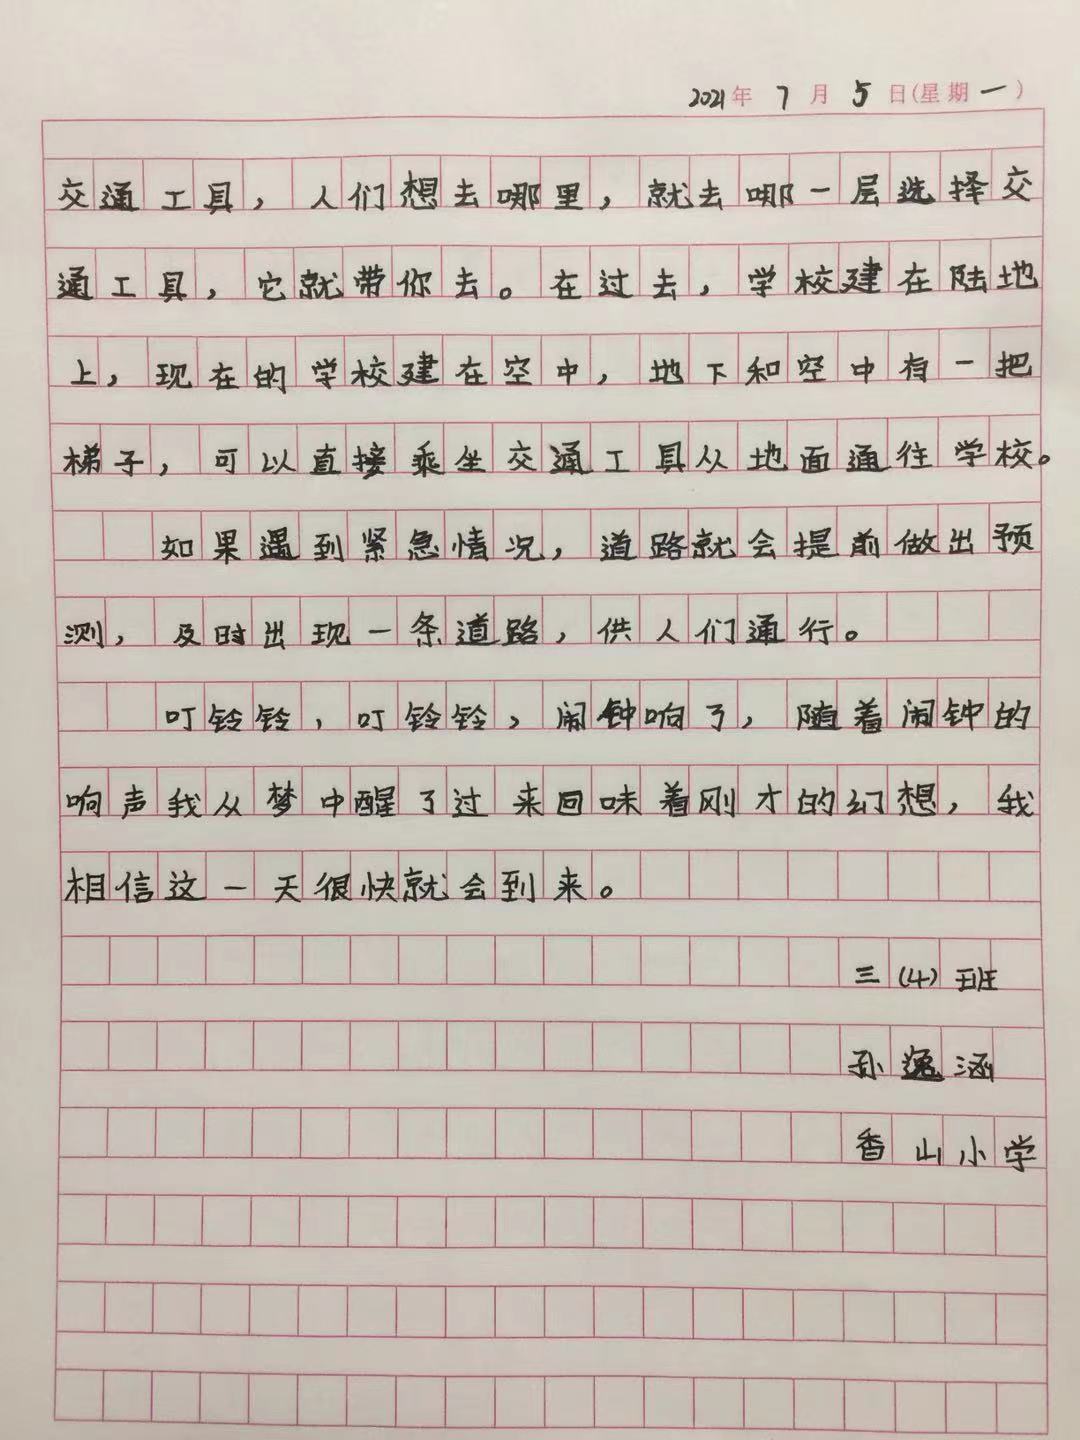 2021年 7月 5日(星期一)
交通工具，人们想去哪里，就去哪一层选择交
通工具，它就带你去。在过去，学校建在陆地
上，现在的学校建在空中，地下和空中有一把
梯子，可以直接乘坐交通工具从地面通往学校。
如果遇到紧急情况，道路就会提前做出预
测，及时出现一条道路，供人们通行。
叮铃铃，叮铃铃，闹钟响了，随着闹钟的
响声我从梦中醒了过来回味着刚才的幻想，我
相信这一天很快就会到来。
三(4)班
孙逸涵
香山小学